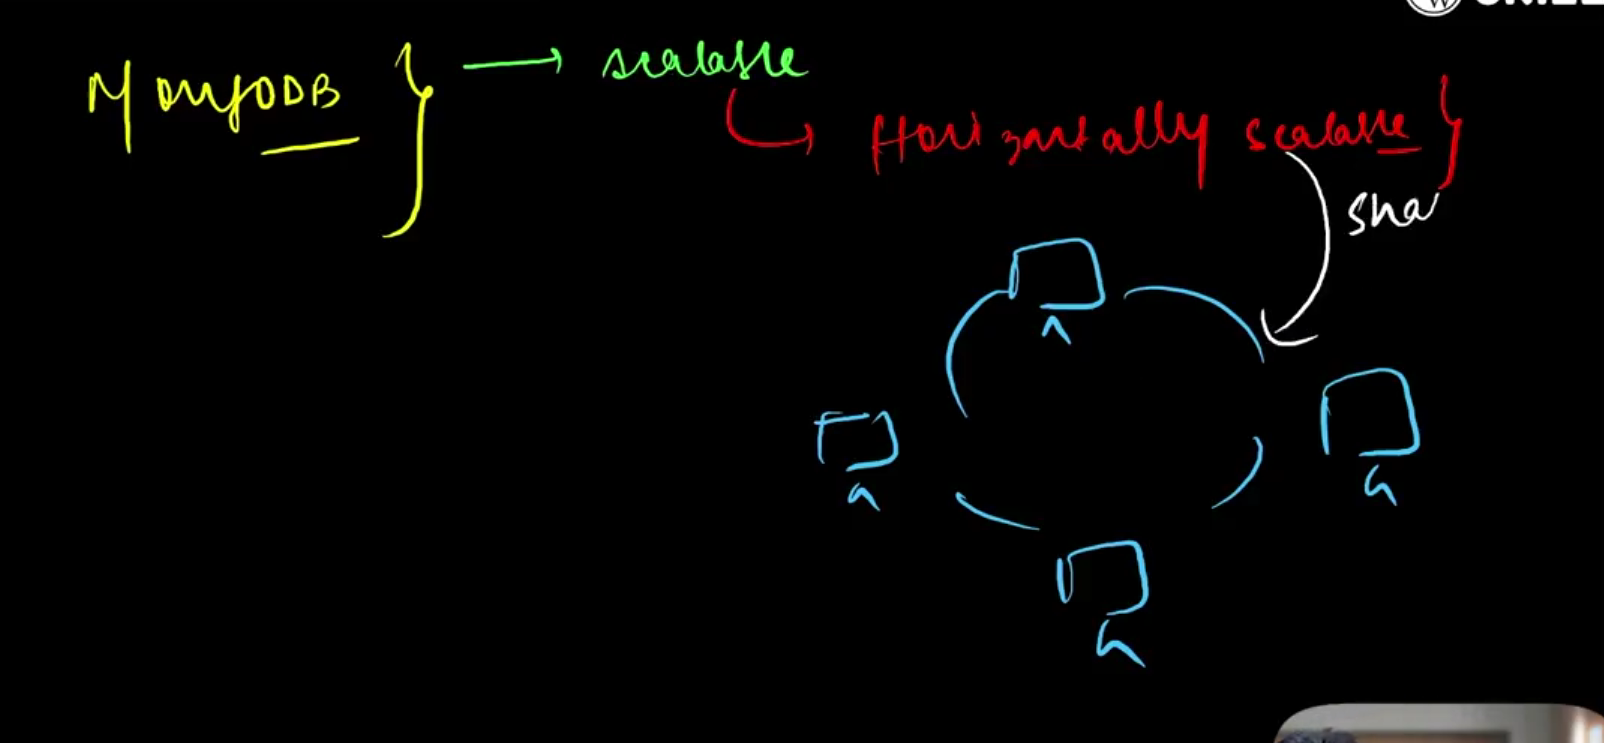 MongoDB } → scalable
Horizontally scalable }
sha